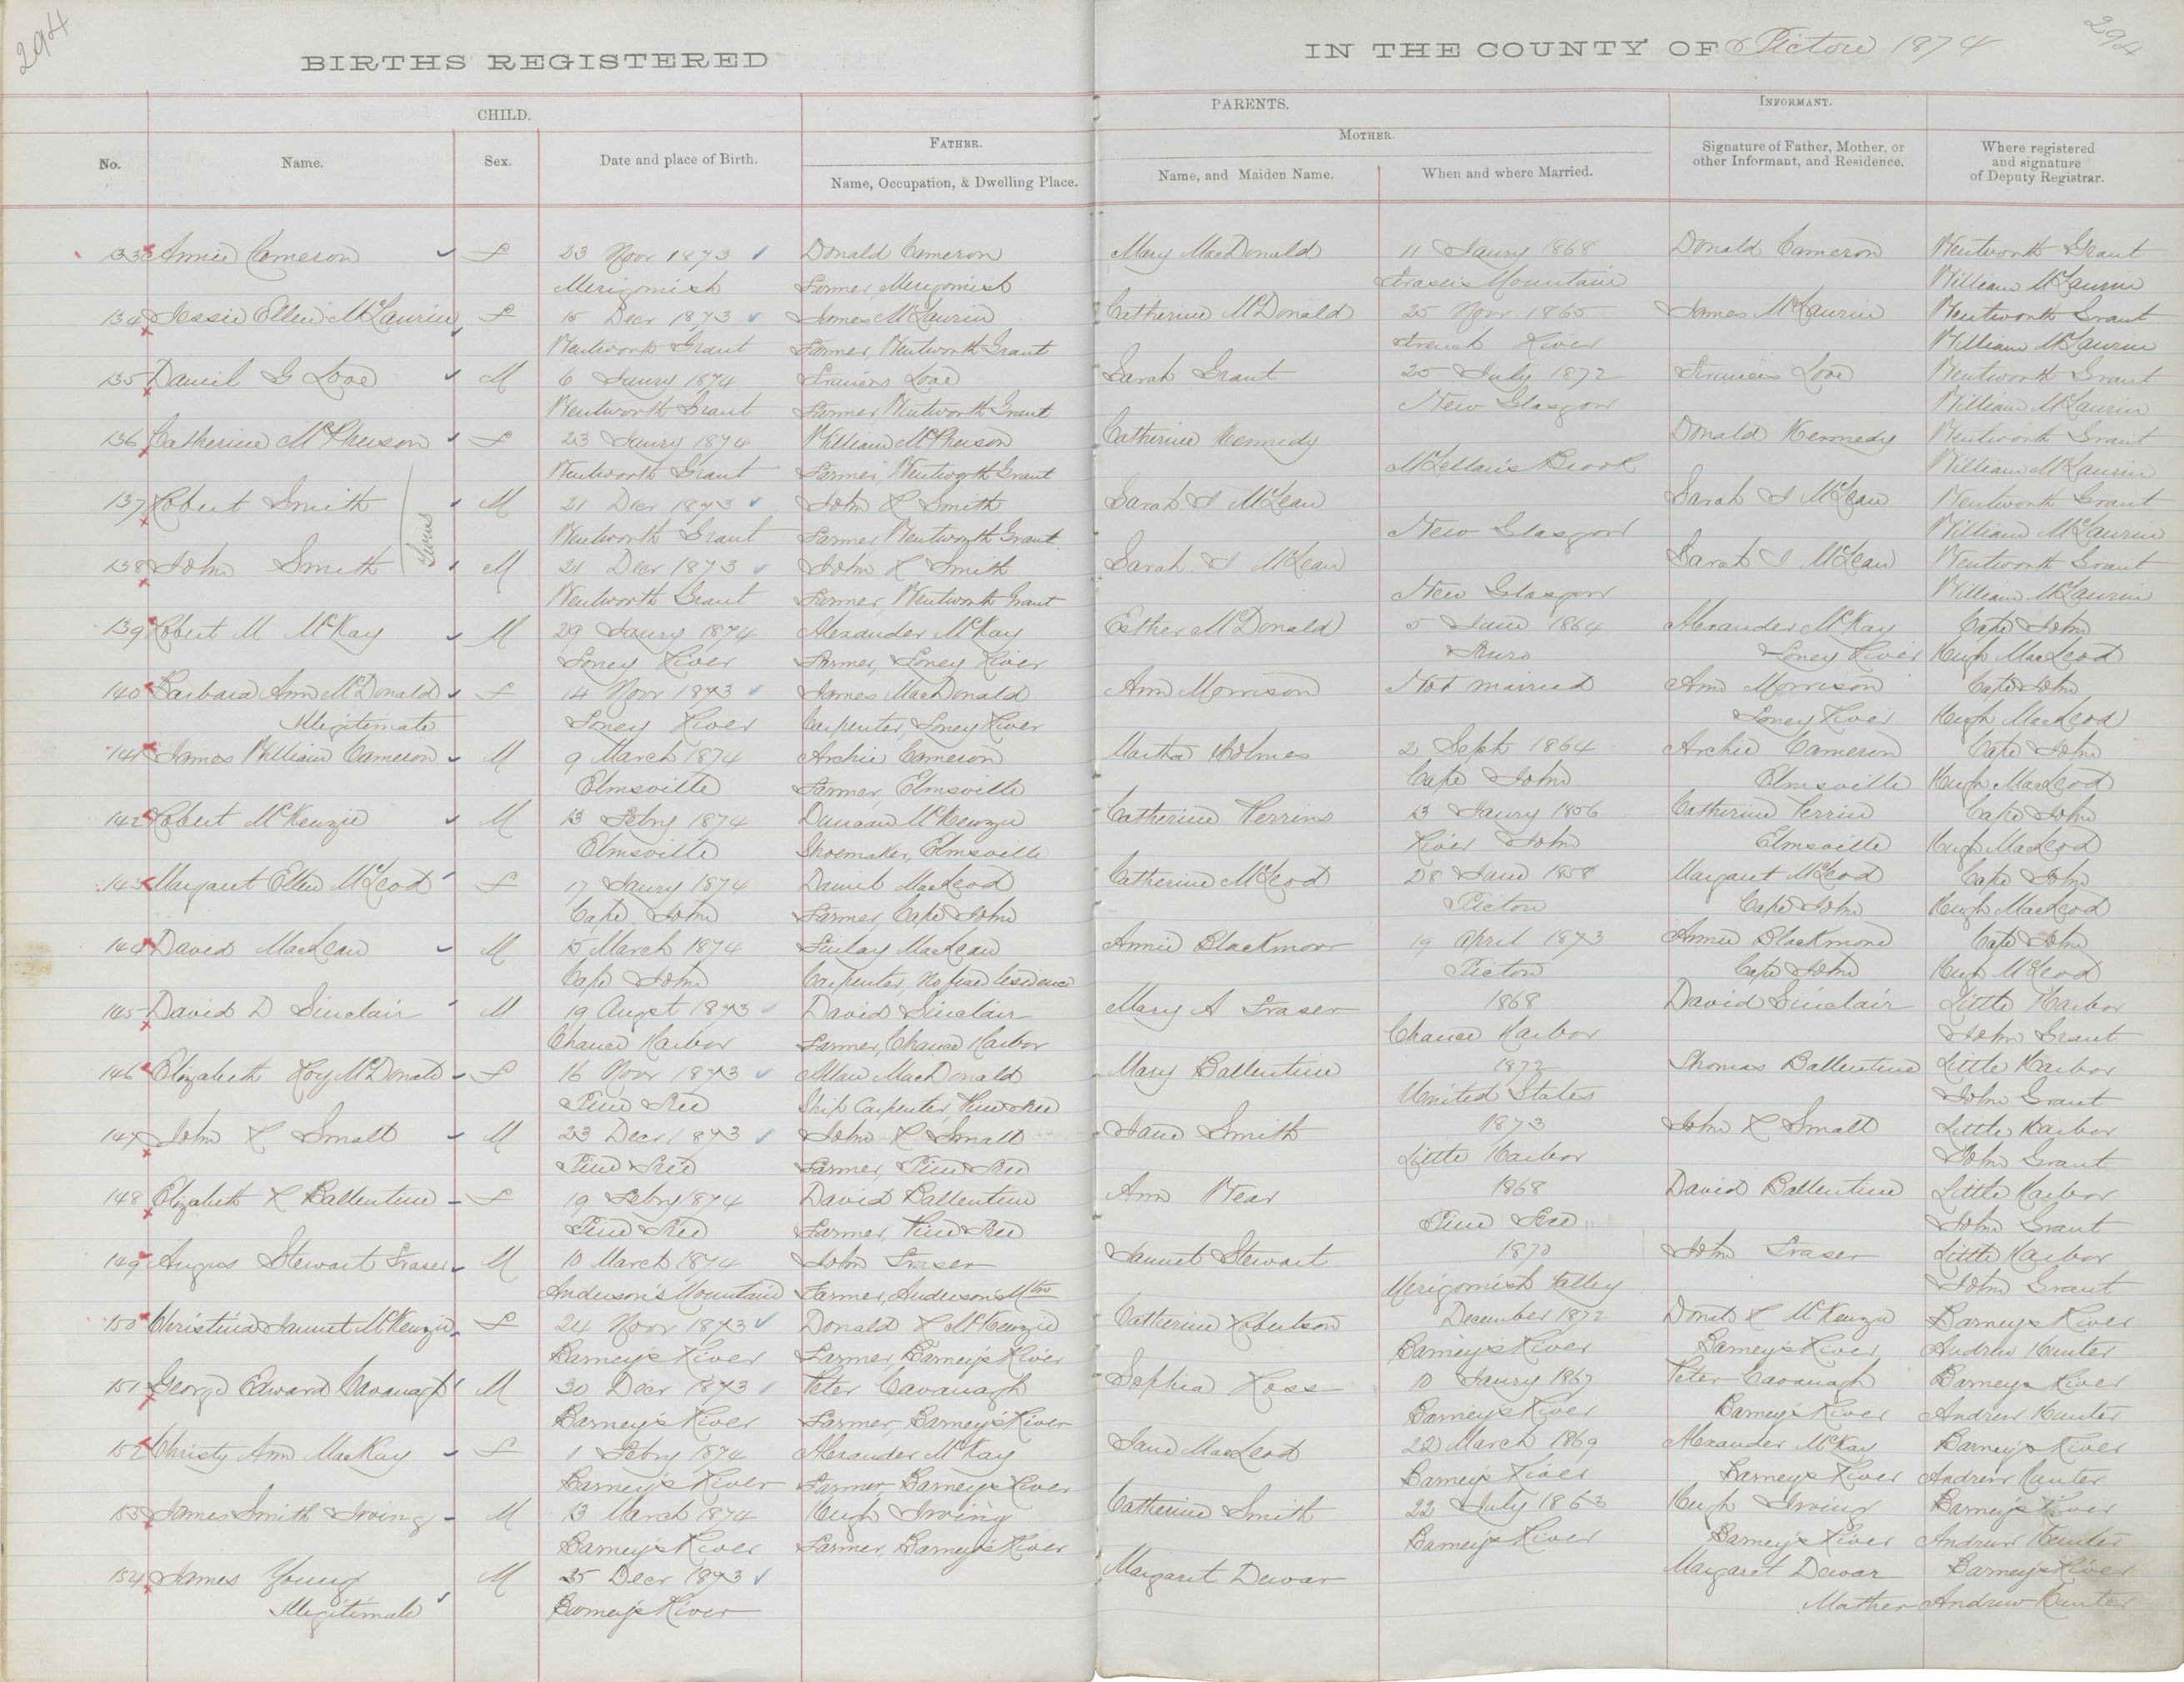 294
294
BIRTHS REGISTERED
IN THE COUNTY OF Pictou 1874
CHILD.
PARENTS.
INFORMANT.
FATHER.
MOTHER.
No.
Name.
Sex.
Date and place of Birth.
Name, Occupation, & Dwelling Place.
Name, and Maiden Name.
When and where Married.
Signature of Father, Mother, or
other Informant, and Residence.
Where registered
and signature
of Deputy Registrar.
133 Annie Cameron f 23 Novr 1873 Donald Cameron Mary MacDonald 11 Janry 1868 Donald Cameron Wentworth Grant
Merigomish Farmer, Merigomish Frasers Mountain William McLaurin
134 Jessie Ellen McLaurin f 15 Decr 1873 James McLaurin Catherine McDonald 25 Novr 1865 James McLaurin Wentworth Grant
Wentworth Grant Farmer, Wentworth Grant French River William McLaurin
135 Daniel G Love M 6 Janry 1874 Francis Love Sarah Grant 25 July 1872 Francis Love Wentworth Grant
Wentworth Grant Farmer, Wentworth Grant New Glasgow William McLaurin
136 Catherine McPherson f 23 Janry 1874 William McPherson Catherine Kennedy Donald Kennedy Wentworth Grant
Wentworth Grant Farmer, Wentworth Grant McLellan's Brook William McLaurin
137 Robert Smith M 21 Decr 1873 John R Smith Sarah J McLean Sarah J McLean Wentworth Grant
Twins
Wentworth Grant Farmer Wentworth Grant New Glasgow William McLaurin
138 John Smith M 21 Decr 1873 John R Smith Sarah J McLean Sarah J McLean Wentworth Grant
Wentworth Grant Farmer, Wentworth Grant New Glasgow William McLaurin
139 Robert M McKay M 29 Janry 1874 Alexander McKay Esther McDonald 5 June 1864 Alexander McKay Cape John
Toney River Farmer, Toney River Truro Toney River Hugh MacLeod
140 Barbara Ann McDonald f 14 Novr 1873 James MacDonald Ann Morrison Not married Ann Morrison Cape John
Illegitimate Toney River Carpenter, Toney River Toney River Hugh MacLeod
141 James William Cameron M 9 March 1874 Archie Cameron Martha Holmes 2 Sept 1864 Archie Cameron Cape John
Elmsville Farmer, Elmsville Cape John Elmsville Hugh MacLeod
142 Robert McKenzie M 13 Febry 1874 Duncan McKenzie Catherine Perrins 13 Janry 1856 Catherine Perrin Cape John
Elmsville Shoemaker, Elmsville River John Elmsville Hugh MacLeod
143 Margaret Ellen McLeod f 17 Janry 1874 Daniel MacLeod Catherine McLeod 28 June 1858 Margaret McLeod Cape John
Cape John Farmer, Cape John Pictou Cape John Hugh MacLeod
144 David MacLean M 15 March 1874 Finlay MacLean Annie Blackmore 19 April 1873 Annie Blackmore Cape John
Cape John Carpenter, No fixed residence Pictou Cape John Hugh McLeod
145 David D Sinclair M 19 Augst 1873 David Sinclair Mary A Fraser 1868 David Sinclair Little Harbor
Chance Harbor Farmer, Chance Harbor Chance Harbor John Grant
146 Elizabeth Roy McDonald f 16 Novr 1873 Allan MacDonald Mary Ballentine 1872 Thomas Ballentine Little Harbor
Pine Tree Ship Carpenter, Pine Tree United States John Grant
147 John R Small M 23 Decr 1873 John R Small Jane Smith 1873 John R Small Little Harbor
Pine Tree Farmer, Pine Tree Little Harbor John Grant
148 Elizabeth R Ballentine f 19 Febry 1874 David Ballentine Ann Wear 1868 David Ballentine Little Harbor
Pine Tree Farmer, Pine Tree Pine Tree John Grant
149 Angus Stewart Fraser M 10 March 1874 John Fraser Jannet Stewart 1870 John Fraser Little Harbor
Anderson's Mountain Farmer, Andersons Mtn Merigomish Valley John Grant
150 Christina Jannet McKenzie f 24 Novr 1873 Donald R McKenzie Catherine Robertson December 1872 Donald R McKenzie Barneys River
Barney's River Farmer, Barney's River Barney's River Barney's River Andrew Hunter
151 George Edward Cavanagh M 30 Decr 1873 Peter Cavanagh Sophia Ross 10 Janry 1867 Peter Cavanagh Barneys River
Barney's River Farmer, Barney's River Barney's River Barney's River Andrew Hunter
152 Christy Ann MacKay f 1 Febry 1874 Alexander McKay Jane MacLeod 22 March 1869 Alexander McKay Barney's River
Barney's River Farmer Barney's River Barney's River Barneys River Andrew Hunter
153 James Smith Irving M 13 March 1874 Hugh Irving Catherine Smith 22 July 1863 Hugh Irving Barney's River
Barney's River Farmer, Barney's River Barney's River Barney's River Andrew Hunter
154 James Young M 25 Decr 1873 Margaret Dewar Margaret Dewar Barney's River
Illegitimate Barney's River Mother Andrew Hunter